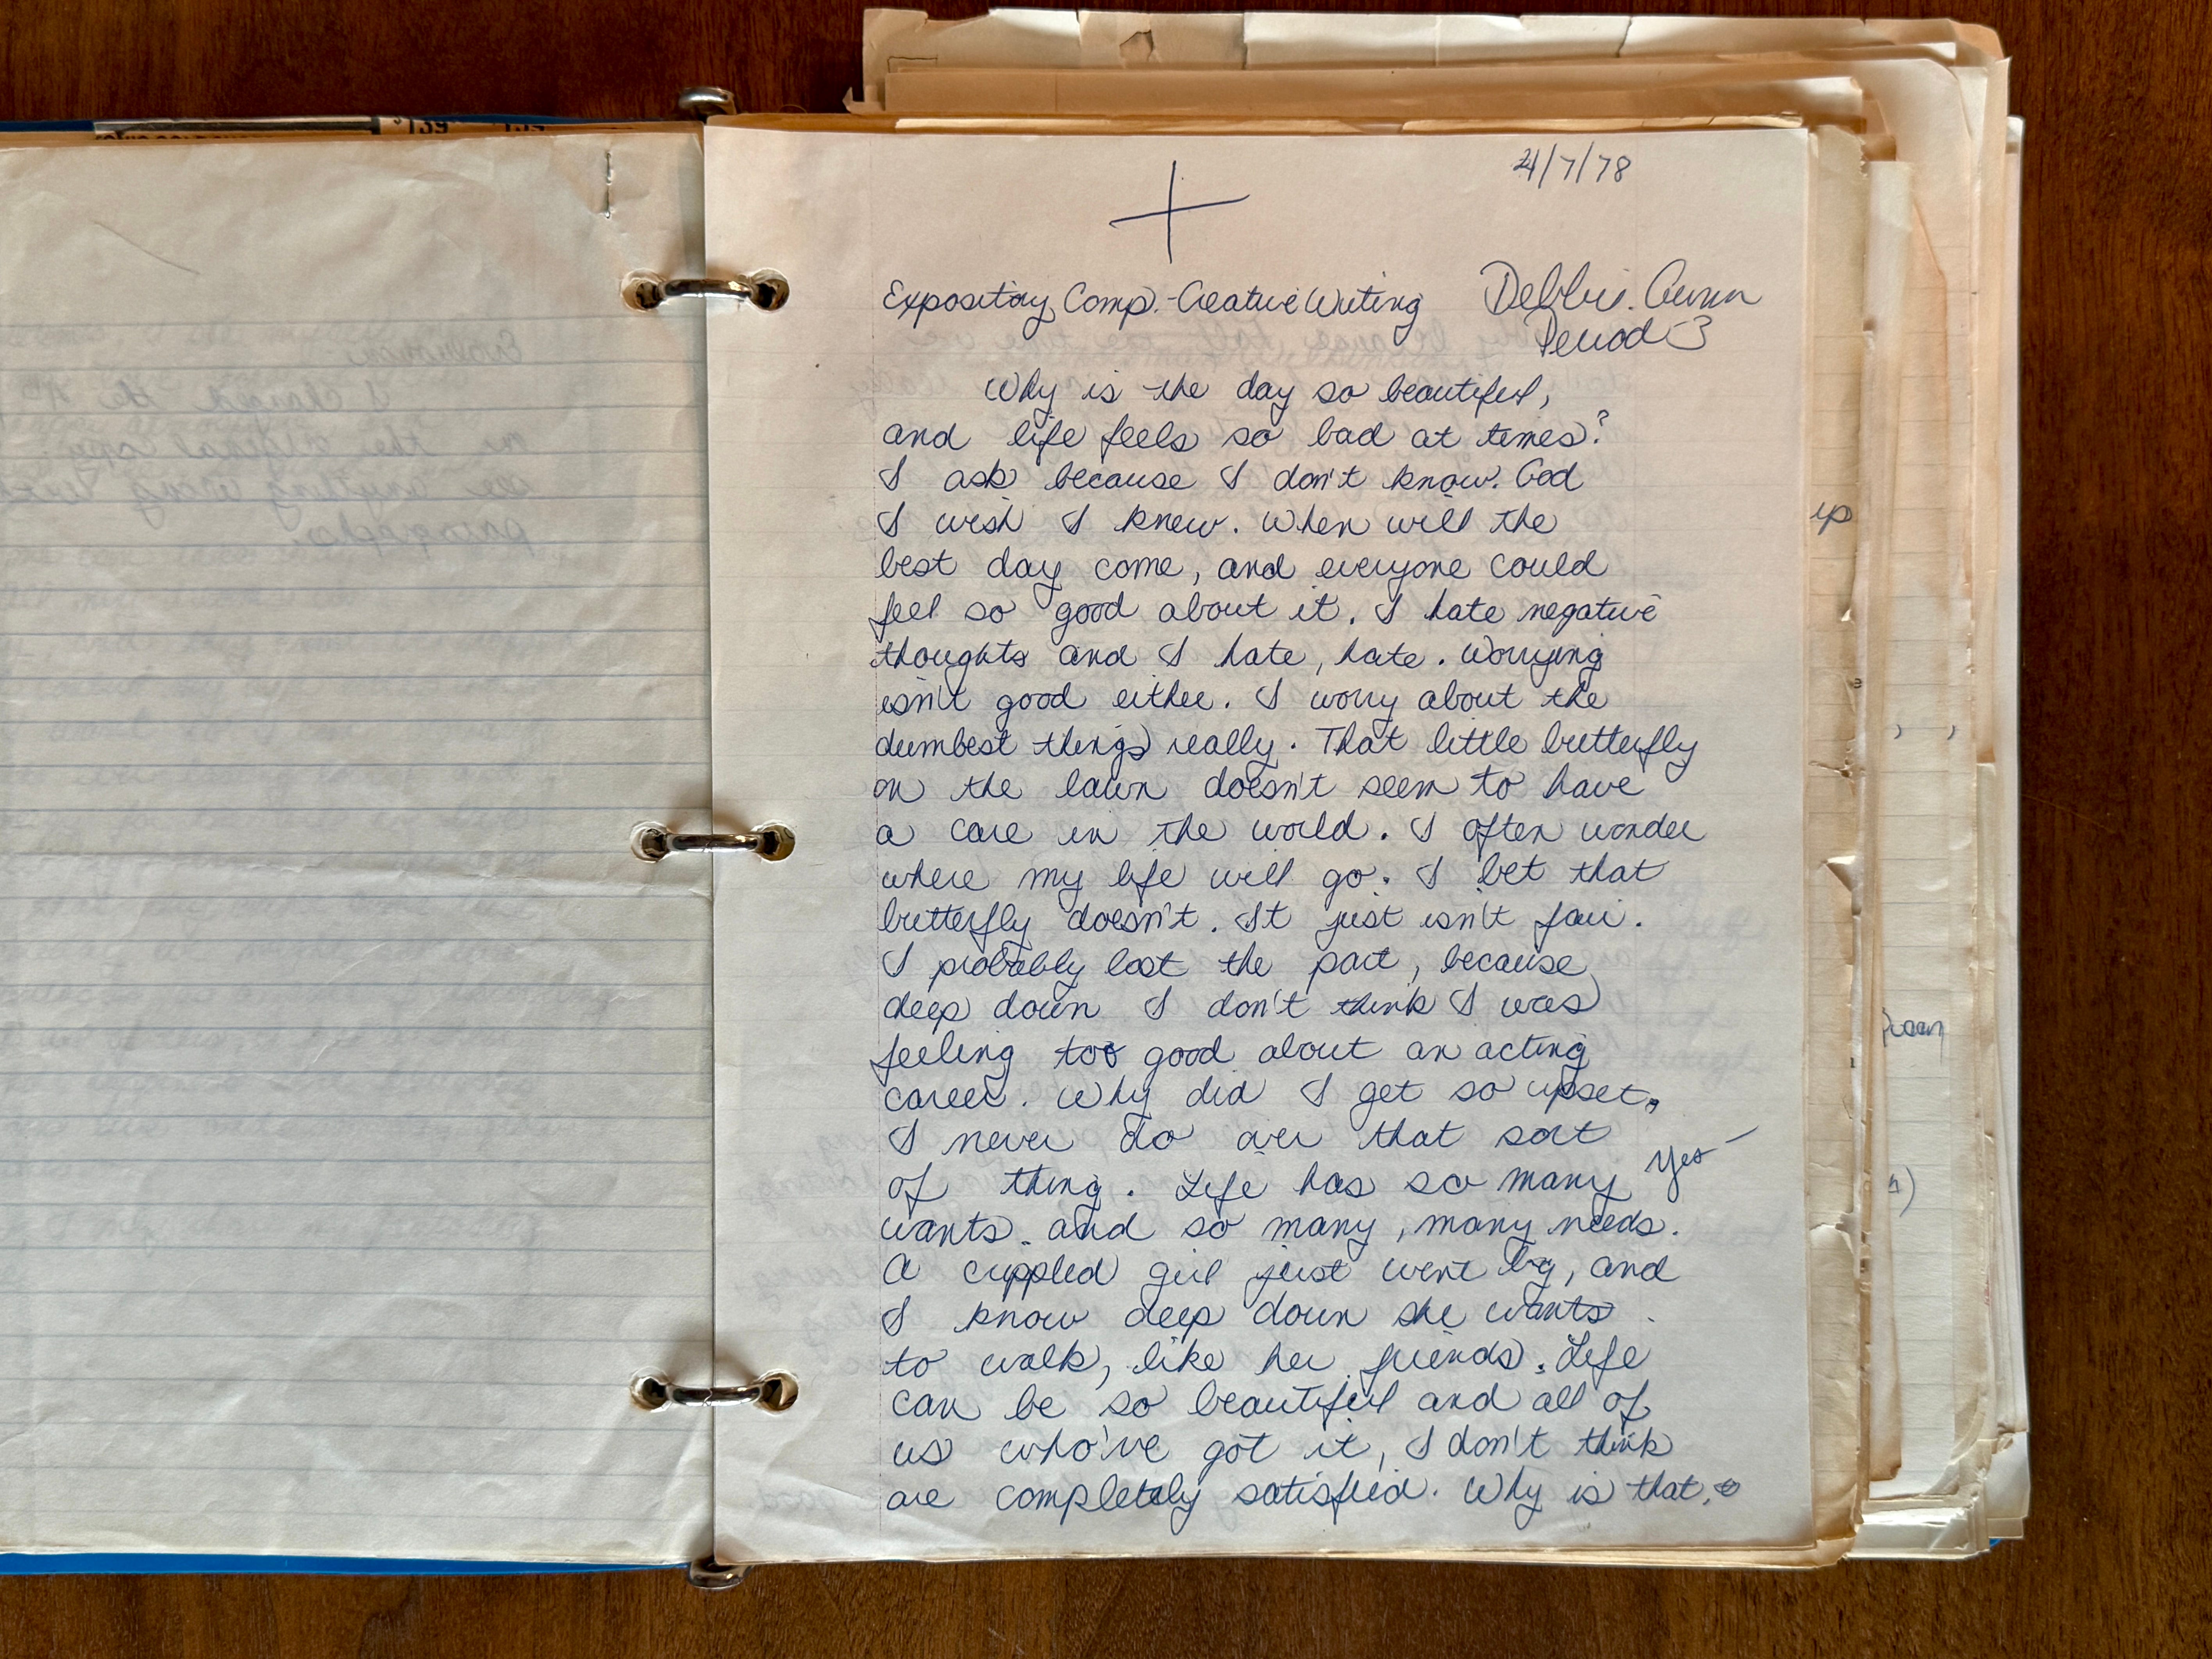 $1.39
4/7/78
+
Expository Comp. - Creative Writing
Debbie
Period 3
Why is the day so beautiful,
and life feels so bad at times?
I ask because I don't know. God
I wish I knew. When will the
best day come, and everyone could
feel so good about it. I hate negative
thoughts and I hate, hate. Worrying
isn't good either. I worry about the
dumbest things really. That little butterfly
on the lawn doesn't seem to have
a care in the world. I often wonder
where my life will go. I bet that
butterfly doesn't. It just isn't fair.
I probably lost the part, because
deep down I don't think I was
feeling too good about an acting
career. Why did I get so upset.
I never do over that sort
of thing. Life has so many
yes
wants. and so many, many needs.
A crippled girl just went by, and
I know deep down she wants
to walk, like her friends. Life
can be so beautiful and all of
us who've got it, I don't think
are completely satisfied. Why is that.